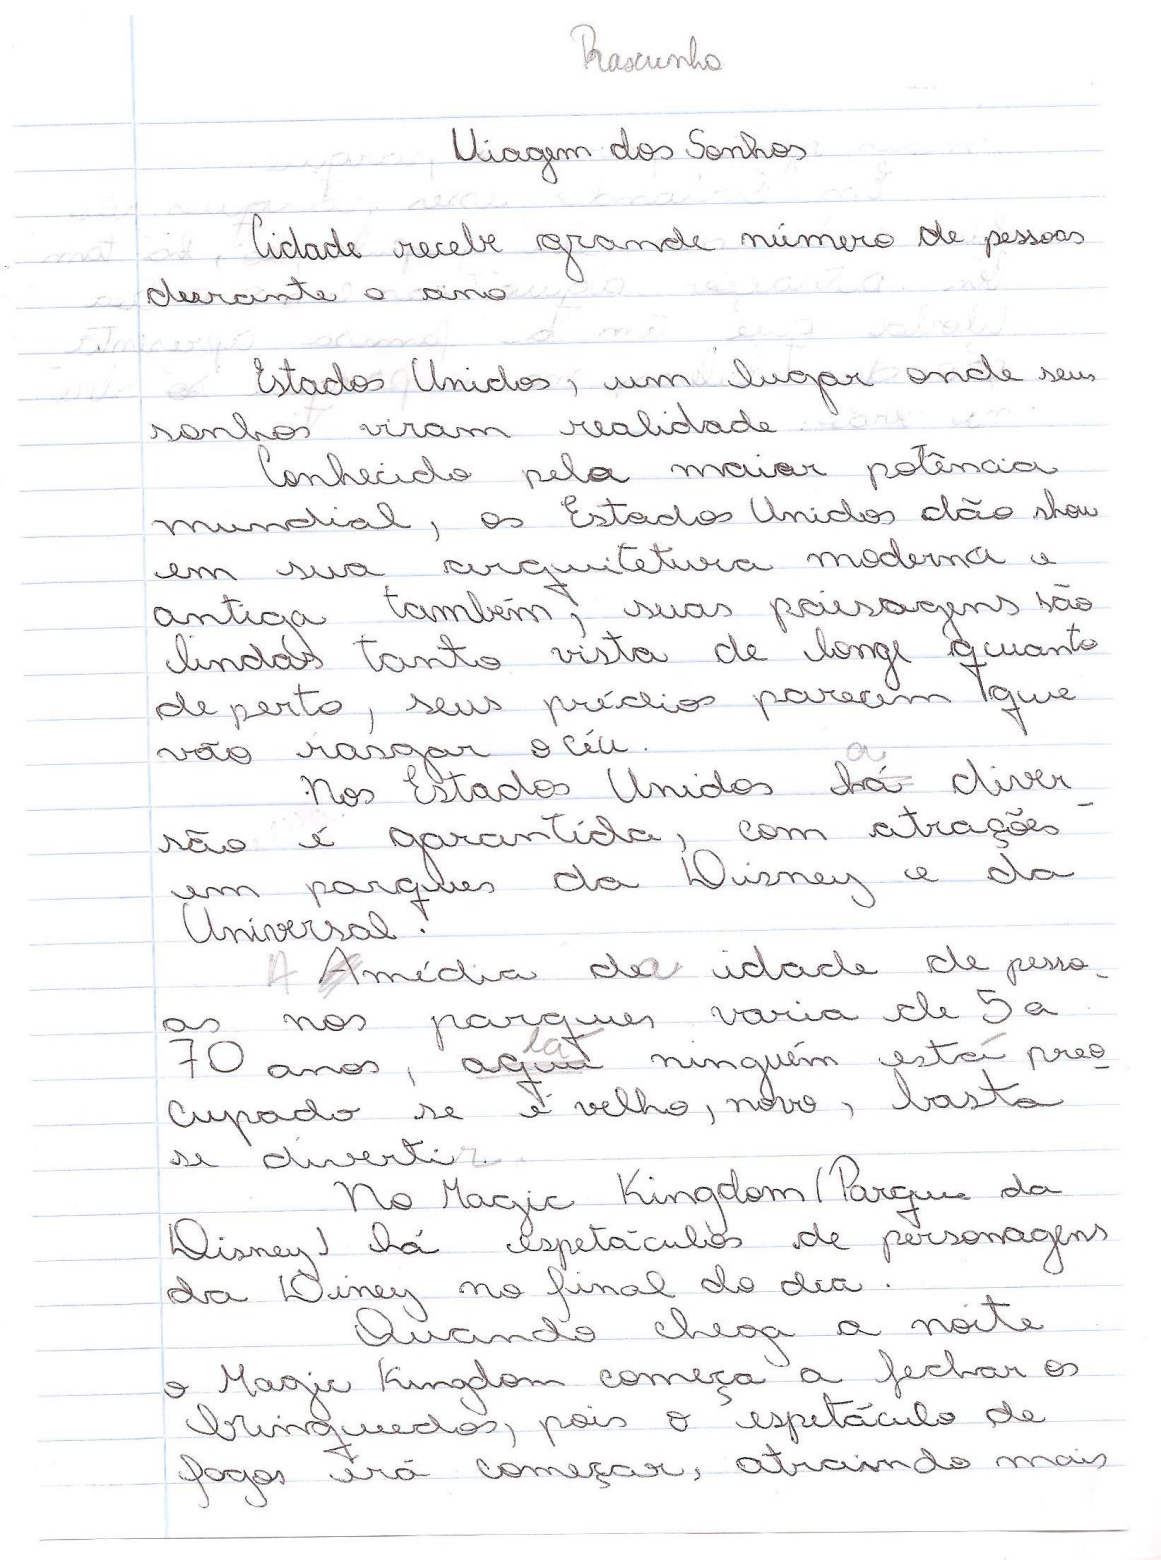 Rascunho
Viagem dos Sonhos
Cidade recebe grande número de pessoas
durante o ano
Estados Unidos, um lugar onde seus
sonhos viram realidade.
Conhecido pela maior potência
mundial, os Estados Unidos dão show
em sua arquitetura moderna e
antiga também, suas paisagens são
lindas tanto vista de longe quanto
de perto, seus prédios parecem que
vão rasgar o céu.
Nos Estados Unidos há a diver
são é garantida, com atrações
em parques da Disney e da
Universal!
A média da idade de pesso-
as nos parques varia de 5 a
70 anos, aqui lá ninguém está preo-
cupado se é velho, novo, basta
se divertir.
No Magic Kingdom (Parque da
Disney) há espetáculos de personagens
da Diney no final do dia.
Quando chega a noite
o Magic Kingdom começa a fechar os
brinquedos, pois o espetáculo de
fogos irá começar, atraindo mais